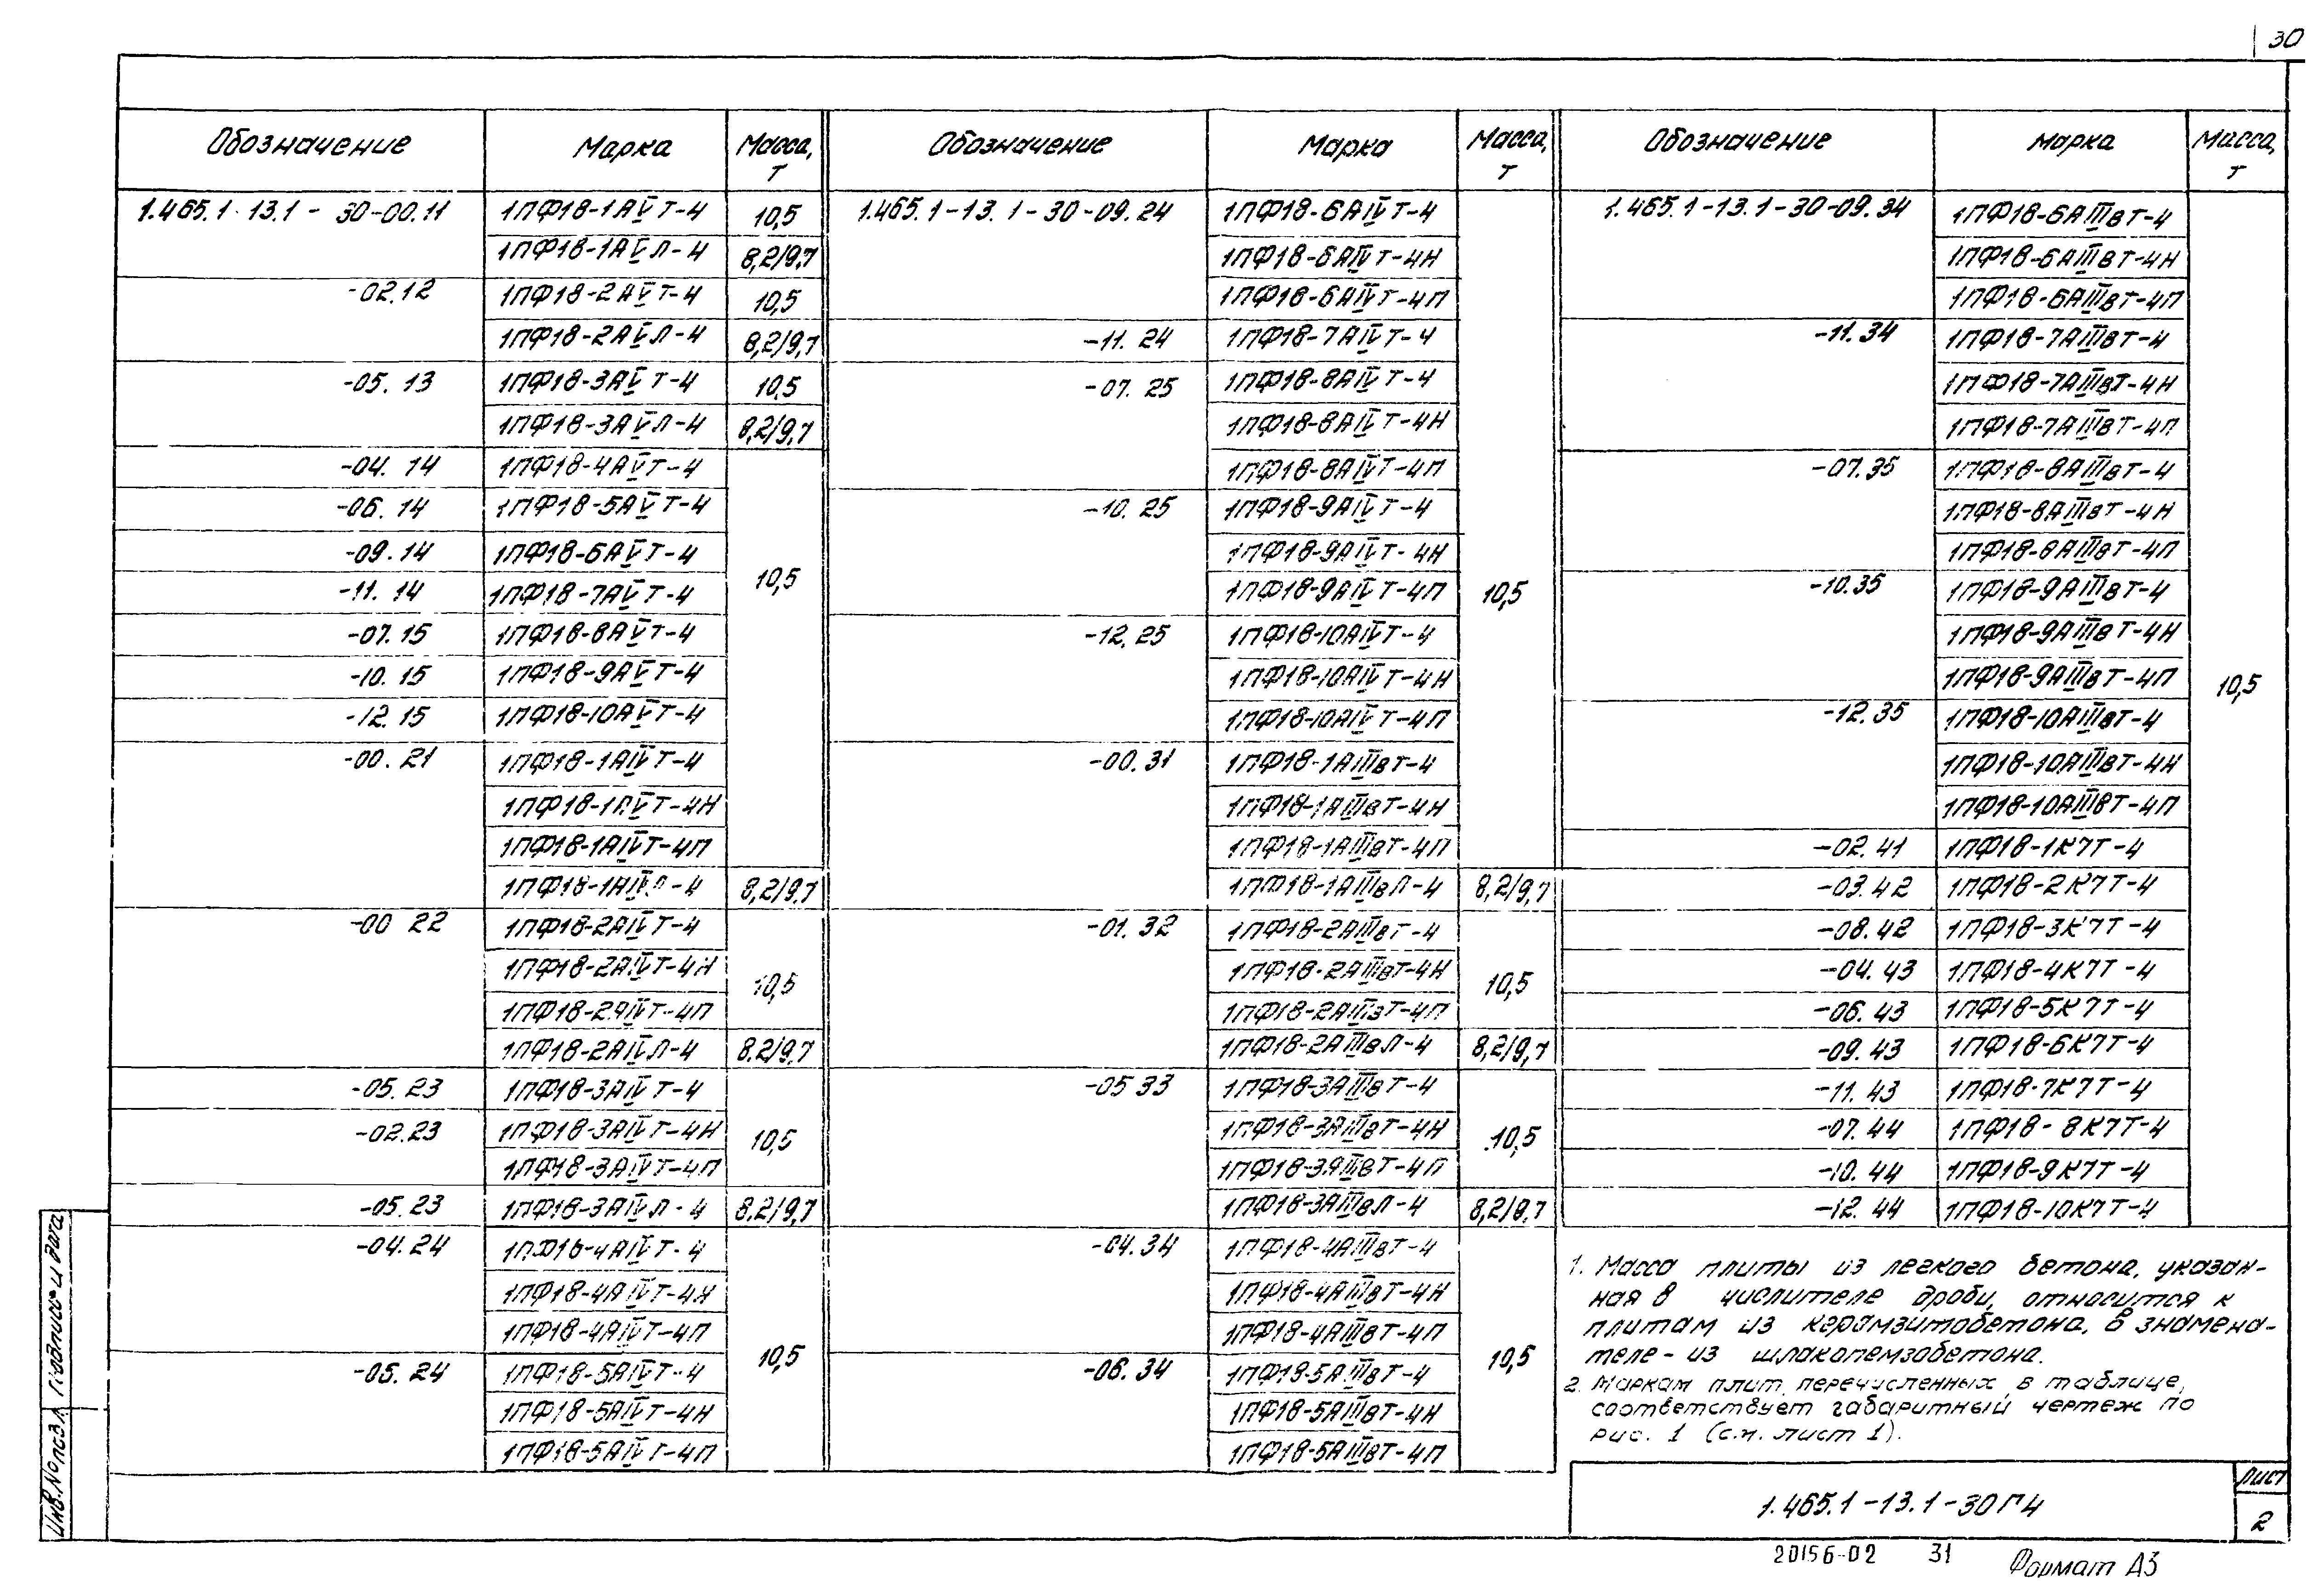 30
Обозначение Марка Масса, т
1.465.1-13.1-30-00.11 1ПФ18-1АVТ-4 10,5
1ПФ18-1АVЛ-4 8,2/9,7
-02.12 1ПФ18-2АVТ-4 10,5
1ПФ18-2АVЛ-4 8,2/9,7
-05.13 1ПФ18-3АVТ-4 10,5
1ПФ18-3АVЛ-4 8,2/9,7
-04.14 1ПФ18-4АVТ-4
-06.14 1ПФ18-5АVТ-4
-09.14 1ПФ18-6АVТ-4
-11.14 1ПФ18-7АVТ-4 10,5
-07.15 1ПФ18-8АVТ-4
-10.15 1ПФ18-9АVТ-4
-12.15 1ПФ18-10АVТ-4
-00.21 1ПФ18-1АIVТ-4
1ПФ18-1АVТ-4Н
1ПФ18-1АIVТ-4П
1ПФ18-1АIVЛ-4 8,2/9,7
-00 22 1ПФ18-2АIVТ-4
1ПФ18-2АIVТ-4Н 10,5
1ПФ18-2АIVТ-4П
1ПФ18-2АIVЛ-4 8,2/9,7
-05.23 1ПФ18-3АIVТ-4
-02.23 1ПФ18-3АIVТ-4Н 10,5
1ПФ18-3АIVТ-4П
-05.23 1ПФ18-3АIVЛ-4 8,2/9,7
-04.24 1ПФ18-4АIVТ-4
1ПФ18-4АIVТ-4Н
1ПФ18-4АIVТ-4П
-05.24 1ПФ18-5АIVТ-4 10,5
1ПФ18-5АIVТ-4Н
1ПФ18-5АIVТ-4П
Обозначение Марка Масса, т
1.465.1-13.1-30-09.24 1ПФ18-6АIVТ-4
1ПФ18-6АIVТ-4Н
1ПФ18-6АIVТ-4П
-11.24 1ПФ18-7АIVТ-4
-07.25 1ПФ18-8АIVТ-4
1ПФ18-8АIVТ-4Н
1ПФ18-8АIVТ-4П
-10.25 1ПФ18-9АIVТ-4
1ПФ18-9АIVТ-4Н
1ПФ18-9АIVТ-4П 10,5
-12.25 1ПФ18-10АIVТ-4
1ПФ18-10АIVТ-4Н
1ПФ18-10АIVТ-4П
-00.31 1ПФ18-1АIIIвТ-4
1ПФ18-1АIIIвТ-4Н
1ПФ18-1АIIIвТ-4П
1ПФ18-1АIIIвЛ-4 8,2/9,7
-01.32 1ПФ18-2АIIIвТ-4
1ПФ18-2АIIIвТ-4Н 10,5
1ПФ18-2АIIIвТ-4П
1ПФ18-2АIIIвЛ-4 8,2/9,7
-05 33 1ПФ18-3АIIIвТ-4
1ПФ18-3АIIIвТ-4Н 10,5
1ПФ18-3АIIIвТ-4П
1ПФ18-3АIIIвЛ-4 8,2/9,7
-04.34 1ПФ18-4АIIIвТ-4
1ПФ18-4АIIIвТ-4Н
1ПФ18-4АIIIвТ-4П
-06.34 1ПФ18-5АIIIвТ-4 10,5
1ПФ18-5АIIIвТ-4Н
1ПФ18-5АIIIвТ-4П
Обозначение Марка Масса, т
1.465.1-13.1-30-09.34 1ПФ18-6АIIIвТ-4
1ПФ18-6АIIIвТ-4Н
1ПФ18-6АIIIвТ-4П
-11.34 1ПФ18-7АIIIвТ-4
1ПФ18-7АIIIвТ-4Н
1ПФ18-7АIIIвТ-4П
-07.35 1ПФ18-8АIIIвТ-4
1ПФ18-8АIIIвТ-4Н
1ПФ18-8АIIIвТ-4П
-10.35 1ПФ18-9АIIIвТ-4
1ПФ18-9АIIIвТ-4Н
1ПФ18-9АIIIвТ-4П 10,5
-12.35 1ПФ18-10АIIIвТ-4
1ПФ18-10АIIIвТ-4Н
1ПФ18-10АIIIвТ-4П
-02.41 1ПФ18-1К7Т-4
-03.42 1ПФ18-2К7Т-4
-08.42 1ПФ18-3К7Т-4
-04.43 1ПФ18-4К7Т-4
-06.43 1ПФ18-5К7Т-4
-09.43 1ПФ18-6К7Т-4
-11.43 1ПФ18-7К7Т-4
-07.44 1ПФ18-8К7Т-4
-10.44 1ПФ18-9К7Т-4
-12.44 1ПФ18-10К7Т-4
1. Масса плиты из легкого бетона, указан-
ная в числителе дроби, относится к
плитам из керамзитобетона, в знамена-
теле - из шлакопемзобетона.
2. Маркам плит, перечисленных в таблице,
соответствует габаритный чертеж по
рис. 1 (см. лист 1).
1.465.1-13.1-30ГЧ
Лист
2
Инв.№ подл. Подпись и дата
20156-02 31 Формат А3